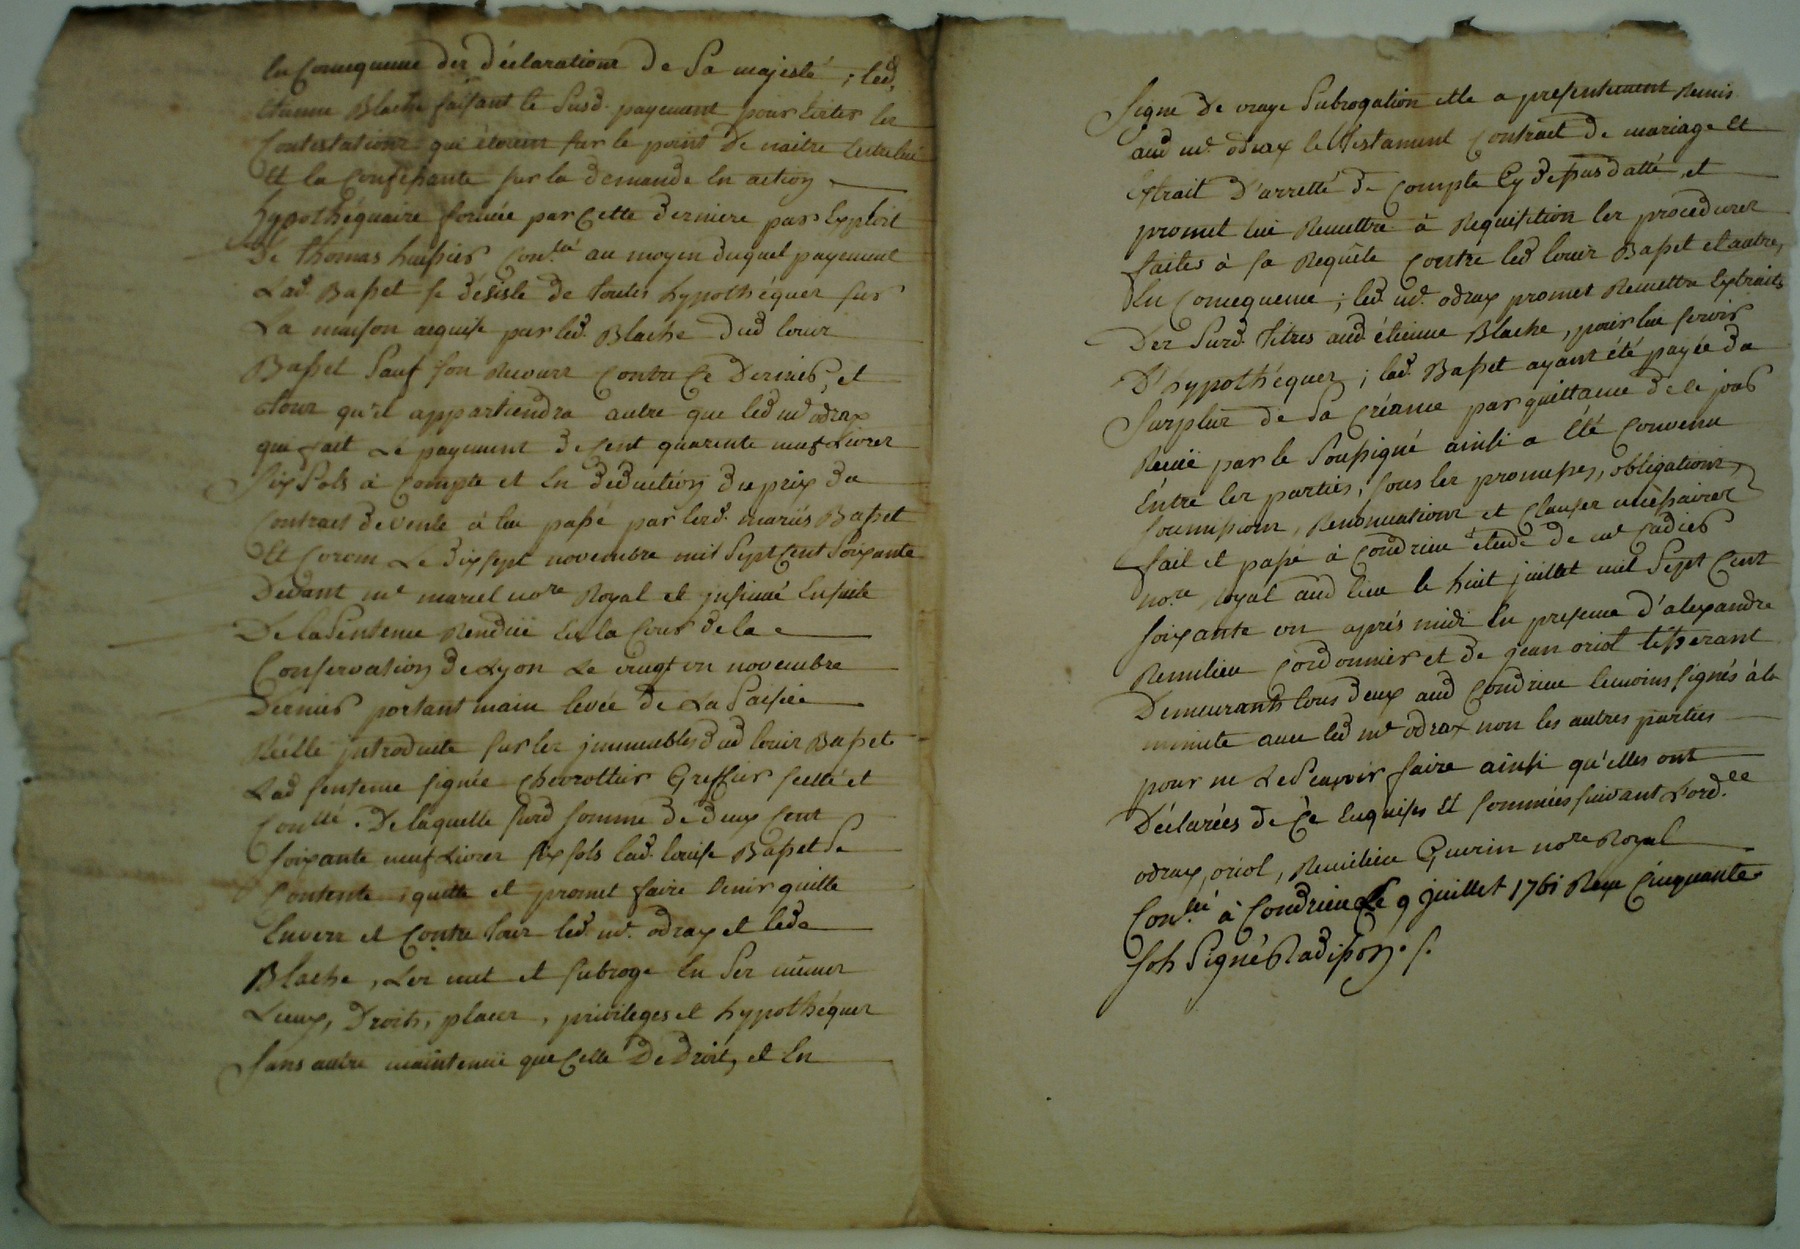 En Consequence des déclarations de Sa majesté ; led.
étienne Blache faisant le Susd. payement pour éviter les
Contestations qui étoient sur le point de naitre Entre lui
Et la Confessante sur la demande En action
hypothéquaire formée par Cette derniere par Exploit
De thomas huissier Con.llé au moyen duquel payement
Lad Basset se désiste de toutes hypothéques sur
La maison acquise par led. Blache dud louis
Basset Sauf son Recours Contre Ce Dernier, et
tous qu'il appartiendra autre que led me odrax
qui fait Le payement de Cent quarente neuf Livres
Six Sols à Compte et En déduction du prix du
Contract de vente à lui passé par lesd. mariés Basset
Et Corom Le dix sept novembre mil Sept Cent Soixante
Devant me mariel nore Royal et insinué Ensuite
De la Sentence Rendüe En la Cour de la
Conservation de Lyon Le vingt un novembre
Dernier portant main levée de La Saisie
Réelle introduite sur les immeubles dud louis Basset
Lad sentence signée Chevrottier Greffier scellé et
Con.llé. De laquelle susd somme de deux Cent
soixante neuf Livres six sols lad. louise Basset Se
Contente, quitte et promet faire tenir quitte
Envers et Contre tous led. me. odrax et led
Blache, Les met et subroge En Ses mêmes
Lieux, Droits, places, privileges et hypothéques
Sans autre maintenüe que Celle De Droit, et En
Signe De vraye Subrogation Elle a presentement Remis
aud me. odrax le testament Contrat de mariage et
Extrait D'arretté de Compte Cy dessus datté, et
promet lui Remettre à Requisition les procedures
faites à sa Requête Contre led louis Basset et autres,
En Consequence ; led. me. odrax promet Remettre Extraits
Des Susd. titres aud. étienne Blache, pour lui servir
D'hypothéques ; lad. Basset ayant été payée du
Surplus de Sa Créance par quittance de ce jour
Recüe par le Soussigné ainsi a été Convenu
Entre les parties, sous les promesses, obligations,
soumissions, Renonciations et Clauses nécessaires
fait et passé à Condrieu étude de me Cadier
nore. Royal aud lieu le huit juillet mil Sept Cent
soixante un après midi En presence d'alexandre
Remilieu Cordonnier et de jean oriol tisserant
Demeurants tous deux aud Condrieu temoins signés à la
minute avec led me odrax non les autres parties
pour ne Le Sçavoir faire ainsi qu'elles ont
Déclarées de Ce Enquises Et sommées suivant L'ord.ce
odrax, oriol, Remilieu Guerin nore Royal
Con.llé à Condrieu Le 9 juillet 1761 Reçu Cinquante
sols Signé Radisson. /.